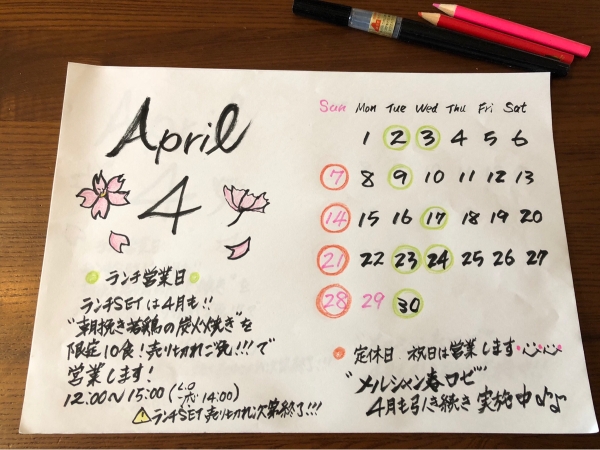 April
4
Sun Mon Tue Wed Thu Fri Sat
1 2 3 4 5 6
7 8 9 10 11 12 13
14 15 16 17 18 19 20
21 22 23 24 25 26 27
28 29 30
ランチ営業日
ランチSETは4月も!!
"朝挽き若鶏の炭火焼き"を
限定10食!売り切れご免!!!で
営業します!
12:00~15:00(L.O 14:00)
⚠ランチSET売り切れ次第終了!!!
定休日 祝日は営業します
"メルシャン春ロゼ"
4月も引き続き実施中♪♪